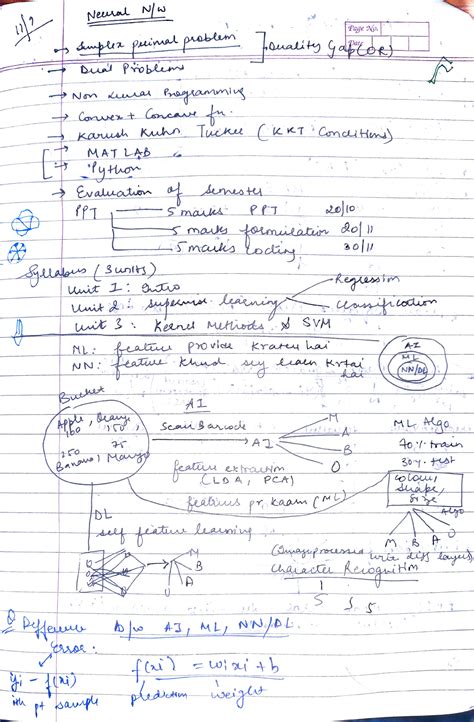 11/9
Neural N/w
Page No.
Date
→ Simplex primal problem ] Duality Gap (OR)
→ Dual Problem
→ Non linear Programming
→ Convex + Concave fn.
→ Karush Kuhn Tucker (KKT Conditions)
MATLAB
Python
→ Evaluation of Semester
PPT → 5 marks PPT 20/10
→ 5 marks formulation 20/11
→ 5 marks coding 30/11
Syllabus (3 units)
Unit 1: Intro
Unit 2: learning Regression
Classification
Unit 3: Kernel Methods & SVM
ML: feature provide krate hai
NN: feature khud sey learn krta
hai
AI
ML
NN/DL
Bucket
Apple, Orange
160 150
250 75
Banana, Mango
AI
Scan Barcode
AI
M
A
B
O
ML Algo
70% train
30% test
feature extraction
(LDA, PCA)
features pr kaam (ML)
colour,
Shape,
Size
Algo
M B A O
DL
self feature learning
M
B
A
U
(Image processing diff layers)
Character Recognition
1
S S S
Q Difference b/w AI, ML, NN/DL
Error:
f(xi) = wixi + b
yi - f(xi)
ith pt sample prediction weight